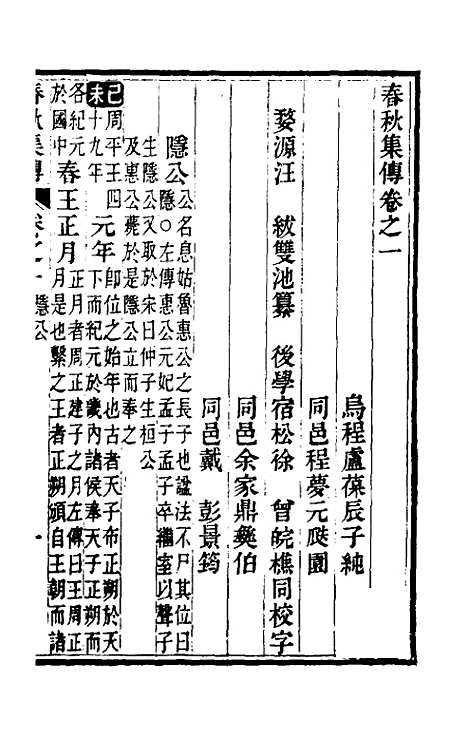 春秋集傳卷之一
烏程盧葆辰子純
同邑程夢元颷園
婺源汪 紱雙池纂 後學宿松徐 曾皖樵同校字
同邑余家鼎彝伯
同邑戴 彭景筠
隱公 公名息姑魯惠公之長子也諡法不尸其位曰
隱○左傳惠公元妃孟子孟子卒繼室以聲子
生隱公又取於宋曰仲子生桓公
及惠公薨於是隱公立而奉之
己未 周平王四
十九年 元年 即位之始年也古者天子布正朔於天
下而紀元於畿內諸侯奉天子正朔而
各紀元
於國中 春王正月 正月者周正建子之月左傳曰王周正
月是也繫之王者正朔頒自王朝而諸
春秋集傳 卷之一 隱公 一